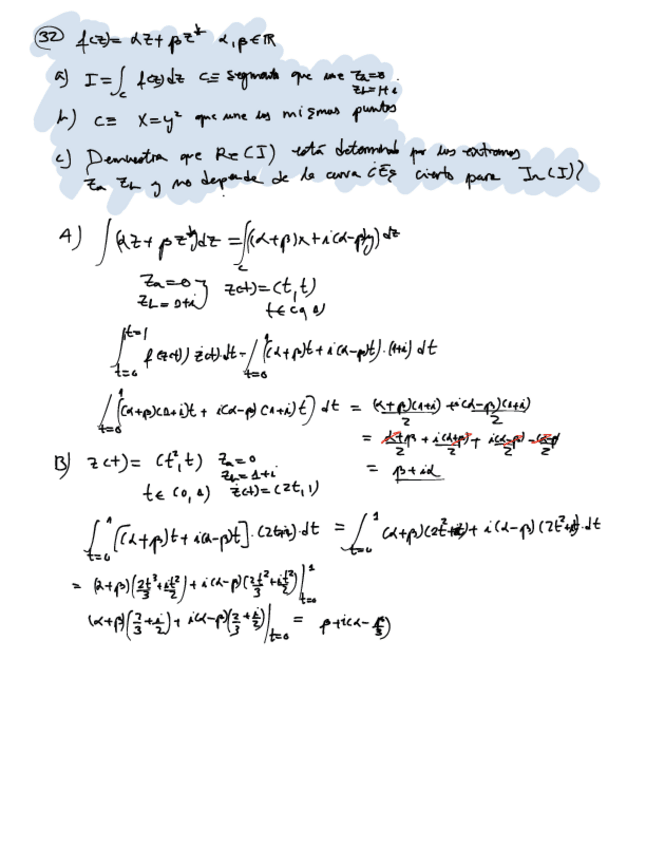 32 f(z)= αz+ βz* α,β∈ℝ
a) I=∫_c f(z)dz C≡ segmento que une z_a=0
z_b=1+i
b) C≡ x=y² que une los mismos puntos
c) Demuestra que Re(I) está determinado por los extremos
z_a z_b y no depende de la curva c ¿Es cierto para Im(I)?
A) ∫(αz+βz*)dz =∫_c((α+β)x+i(α-β)y)dz
z_a=0 } z(t)=(t,t)
z_b=1+i t∈(0,1)
∫_{t=0}^{t=1} f(z(t)) ż(t).dt=∫_{t=0}^{1} ((α+β)t+i(α-β)t).(1+i)dt
∫_{t=0}^{1} [(α+β)(1+i)t+ i(α-β)(1+i)t] dt = (α+β)(1+i)/2 + i(α-β)(1+i)/2
= α+β/2 + i(α+β)/2 + i(α-β)/2 - (α-β)/2
= β+iα
B) z(t)= (t²,t) z_a=0
z_b=1+i
t∈(0,1) ż(t)=(2t,1)
∫_{t=0}^{1} [(α+β)t+i(α-β)t].(2t+i).dt = ∫_{t=0}^{1} (α+β)(2t²+it)+i(α-β)(2t²+it).dt
= (α+β)(2t³/3+it²/2)+i(α-β)(2t²/3+it²/2)|_{t=0}^{1}
(α+β)(2/3+i/2)+i(α-β)(2/3+i/2)|_{t=0} = β+i(α-β/3)